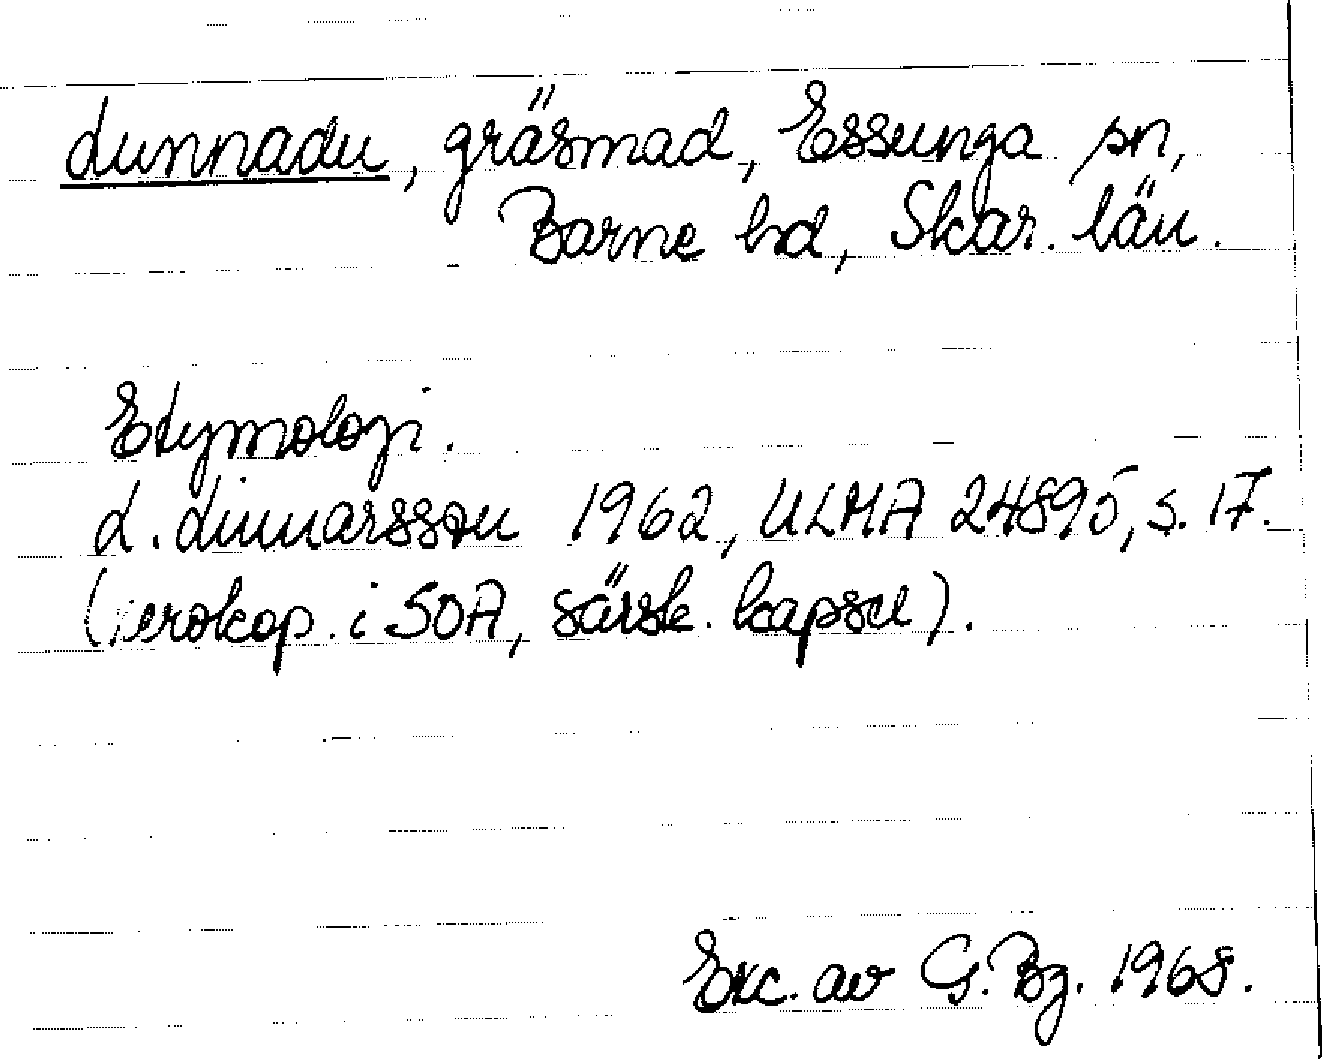 Lunnadu, gräsmad, Essunga sn,
Barne hd, Skar. län.
Etymologi.
L. Linnarsson 1962, ULMA 24895, s. 17.
(xerokop. i SOA, särsk. kapsel).
Exc. av G. Bg. 1968.